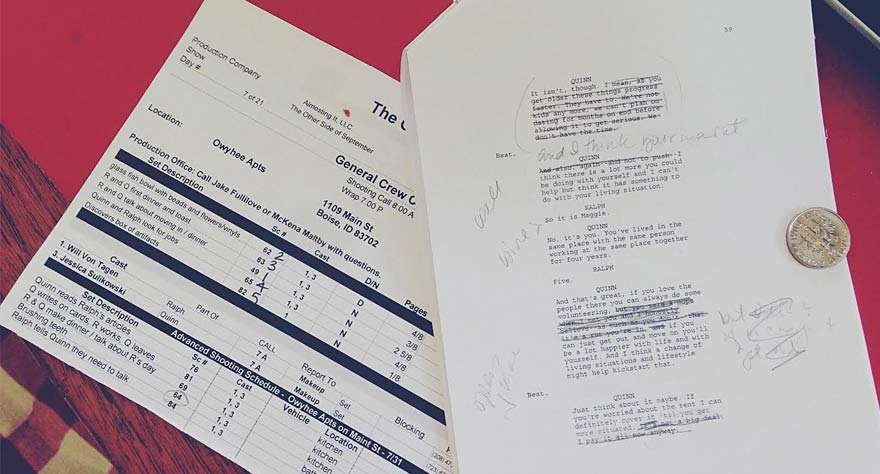 Production Company
Show
Day #
7 of 21
Almosting It, LLC.
The Other Side of September
The
Location:
Owyhee Apts
General Crew C
Shooting Call 8:00 A
Wrap 7:00 P
1109 Main St
Boise, ID 83702
Production Office: Call Jake Fulllilove or McKena Maltby with questions.
Set Description Sc # D/N Pages
glass fish bowl with beads and flowers/vinyls 62 2 1, 3 D 4/8
R and Q first dinner and toast 63 3 1, 3 N 4/8
R and Q talk about moving in / dinner 49 1 1, 3 N 2 5/8
Quinn and Ralph look for jobs 65 4 1, 3 N 4/8
Discovers box of artifacts 82 5 1 N 1/8
Cast Part Of CALL Report To Blocking
1. Will Von Tagen Ralph 7 A Makeup Set
3. Jessica Sulikowski Quinn 7 A Makeup Set
Advanced Shooting Schedule - Owyhee Apts on Maint St - 7/31
Set Description Sc # Cast Vehicle Location
Quinn reads Ralph's articles 76 1, 3 kitchen
Q writes on cards, R works, Q leaves 81 1, 3 kitchen
R & Q make dinner / talk about R's day 69 1, 3 kitchen
Brushing teeth 64 1, 3
Ralph tells Quinn they need to talk 84 1, 3
59
QUINN
It isn't, though. I mean, as you
get older these things progress
faster. They have to. We're not
kids any more, we can't plan on
dating for months on end before
allowing it to get serious. We
don't have the time.
Beat.
and I think
QUINN
And also, again and not to push I
think there is a lot more you could
be doing with yourself and I can't
help but think it has something to
do with your living situation.
RALPH
So it is Maggie.
QUINN
No, it's you. You've lived in the
same place with the same person
working at the same place together
for four years.
RALPH
Five.
QUINN
And that's great, if you love the
people there you can always do some
volunteering, but
it's a rut you're in, and if you
can just get out and move on you'll
be a lot happier with life and with
yourself. And I think a change of
living situations and lifestyle
might help kickstart that.
but
Beat.
QUINN
Just think about it maybe. If
you're worried about the rent I can
definitely cover it 'til you get
more situated. not a big deal,
I pay it all now anyway.